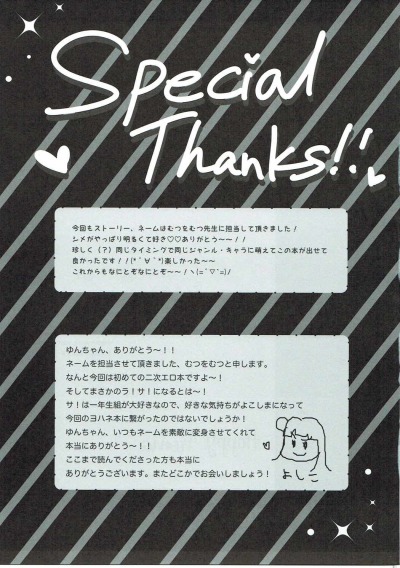 Special
Thanks!!
今回もストーリー、ネームはむつをむつ先生に担当して頂きました!
シメがやっぱり明るくて好き♡♡ありがとう〜〜!!
珍しく(?)同じタイミングで同じジャンル・キャラに萌えてこの本が出せて
良かったです!!(*´∀`*)楽しかった〜〜
これからもなにとぞなにとぞ〜〜!ヽ(=´▽`=)ノ
ゆんちゃん、ありがとう〜!!
ネームを担当させて頂きました、むつをむつと申します。
なんと今回は初めての二次エロ本ですよ〜!
そしてまさかのラ!サ!になるとは〜!
サ!は一年生組が大好きなので、好きな気持ちがよこしまになって
今回のヨハネ本に繋がったのではないでしょうか!
ゆんちゃん、いつもネームを素敵に変身させてくれて
本当にありがとう〜!!
ここまで読んでくださった方も本当に
ありがとうございます。またどこかでお会いしましょう!
よしこ